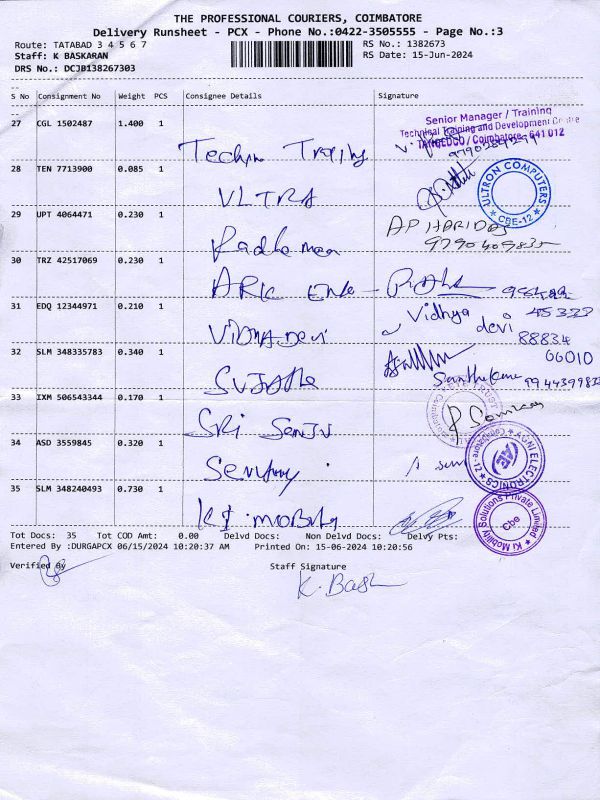 THE PROFESSIONAL COURIERS, COIMBATORE
Delivery Runsheet - PCX - Phone No.:0422-3505555 - Page No.:3
Route: TATABAD 3 4 5 6 7
RS No.: 1382673
Staff: K BASKARAN
RS Date: 15-Jun-2024
DRS No.: DCJB138267303
S No Consignment No Weight PCS Consignee Details Signature
Senior Manager / Training
Technical Training and Development Centre
TANGEDCO / Coimbatore - 641 012
27 CGL 1502487 1.400 1
Techni
28 TEN 7713900 0.085 1
ULTRON COMPUTERS
★ CBE-12 ★
VLTRA
29 UPT 4064471 0.230 1
AP HARIDAS
9790409835
Radhe
30 TRZ 42517069 0.230 1
ARK
31 EDQ 12344971 0.210 1
Vidhya
devi
45323
88834
VIDHYA Devi
32 SLM 348335783 0.340 1
00010
9944399832
SUJATHA
33 IXM 506543344 0.170 1
SRI
34 ASD 3559845 0.320 1
AGNI ELECTRONICS
Coimbatore-12
AE
35 SLM 348240493 0.730 1
KI MOBILITY
Ki Mobility Solutions Private Limited
Cbe
Tot Docs: 35 Tot COD Amt: 0.00 Delvd Docs: Non Delvd Docs: Delvy Pts:
Entered By :DURGAPCX 06/15/2024 10:20:37 AM Printed On: 15-06-2024 10:20:56
Verified By
Staff Signature
K. Bask